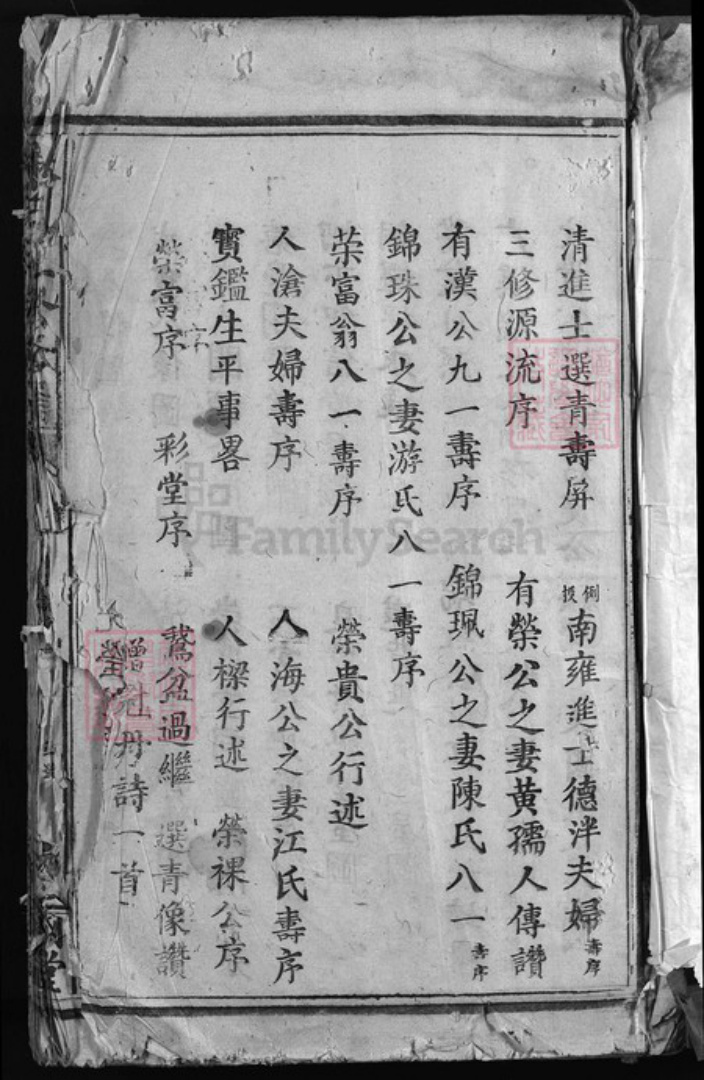 清進士選青壽屏 例授南雍進士德泮夫婦壽序
三修源流序 有榮公之妻黃孺人傳讚
有漢公九一壽序 錦珮公之妻陳氏八一壽序
錦珠公之妻游氏八一壽序
荣富翁八一壽序 榮貴公行述
人滄夫婦壽序 人海公之妻江氏壽序
寳鑑生平事畧 人樑行述 榮祼公序
榮富序 彩堂序 鵞盆過繼 選青像讚
贈牡丹詩一首
FamilySearch